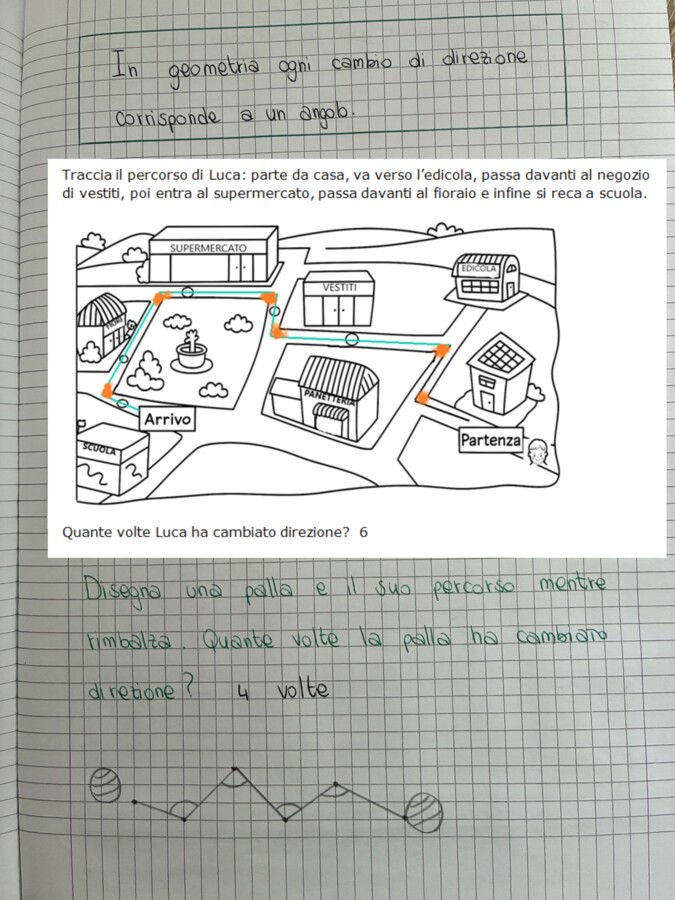 In geometria ogni cambio di direzione
corrisponde a un angolo.
Traccia il percorso di Luca: parte da casa, va verso l'edicola, passa davanti al negozio
di vestiti, poi entra al supermercato, passa davanti al fioraio e infine si reca a scuola.
SUPERMERCATO
EDICOLA
VESTITI
PANETTERIA
Arrivo
Partenza
SCUOLA
Quante volte Luca ha cambiato direzione? 6
Disegna una palla e il suo percorso mentre
rimbalza. Quante volte la palla ha cambiato
direzione? 4 volte